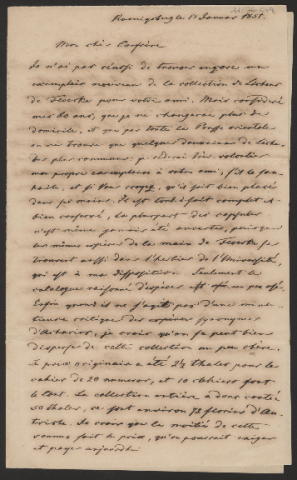 Koenigsberg le 17 Janvier 1858.
Mon cher Confrère
Je n'ai pas réussi de trouver encore un
exemplaire nouveau de la collection de Lichens
de Floerke pour votre ami. Mais considéré
mes 60 ans, que je ne changerai plus de
domicile, et que par toute la Prusse orientale
on ne trouve que quelques douzaines de lichens
des plus communs, je céderai volontiers
mon propre exemplaire à votre ami, s'il le
souhaite, et si Vous croyez, qu'il soit bien placé
dans ses mains. Il est tout à fait complet et
bien conservé, la plupart des capsules
n'est même jamais été ouvertes, puisque
les mêmes espèces de la main de Floerke se
trouvent aussi dans l'herbier de l'Université,
qui est à ma disposition. Seulement le
catalogue raisonné d'espèces est un peu usé.
Enfin quand il ne s'agit pas d'une minu-
tieuse critique des espèces synonymes
d'Acharius, je crois qu'on se peut bien
disposer de cette collection un peu chère.
Le prix originaire a été 2½ thaler pour le
cahier de 20 numeros, et 10 cahiers font
le tout. La collection entière a donc coûté
50 thaler, ce sont environ 75 florins d'Au-
triche. Je crois que la moitié de cette
somme soit le prix, qu'on pourrait exiger
et payer aujourd'hui